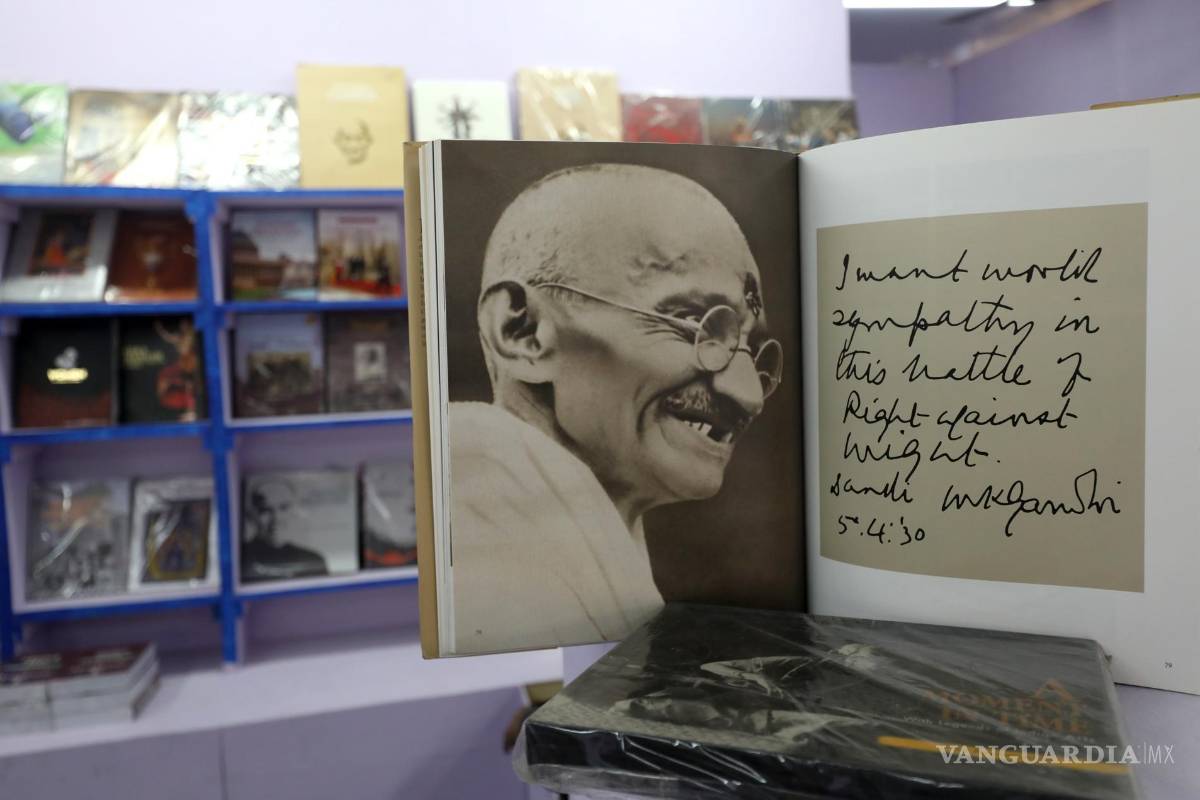 I want world
sympathy in
this battle of
Right against
might.
Dandi MKGandhi
5.4.'30
79
A
MOMENT
IN TIME
VANGUARDIA|MX